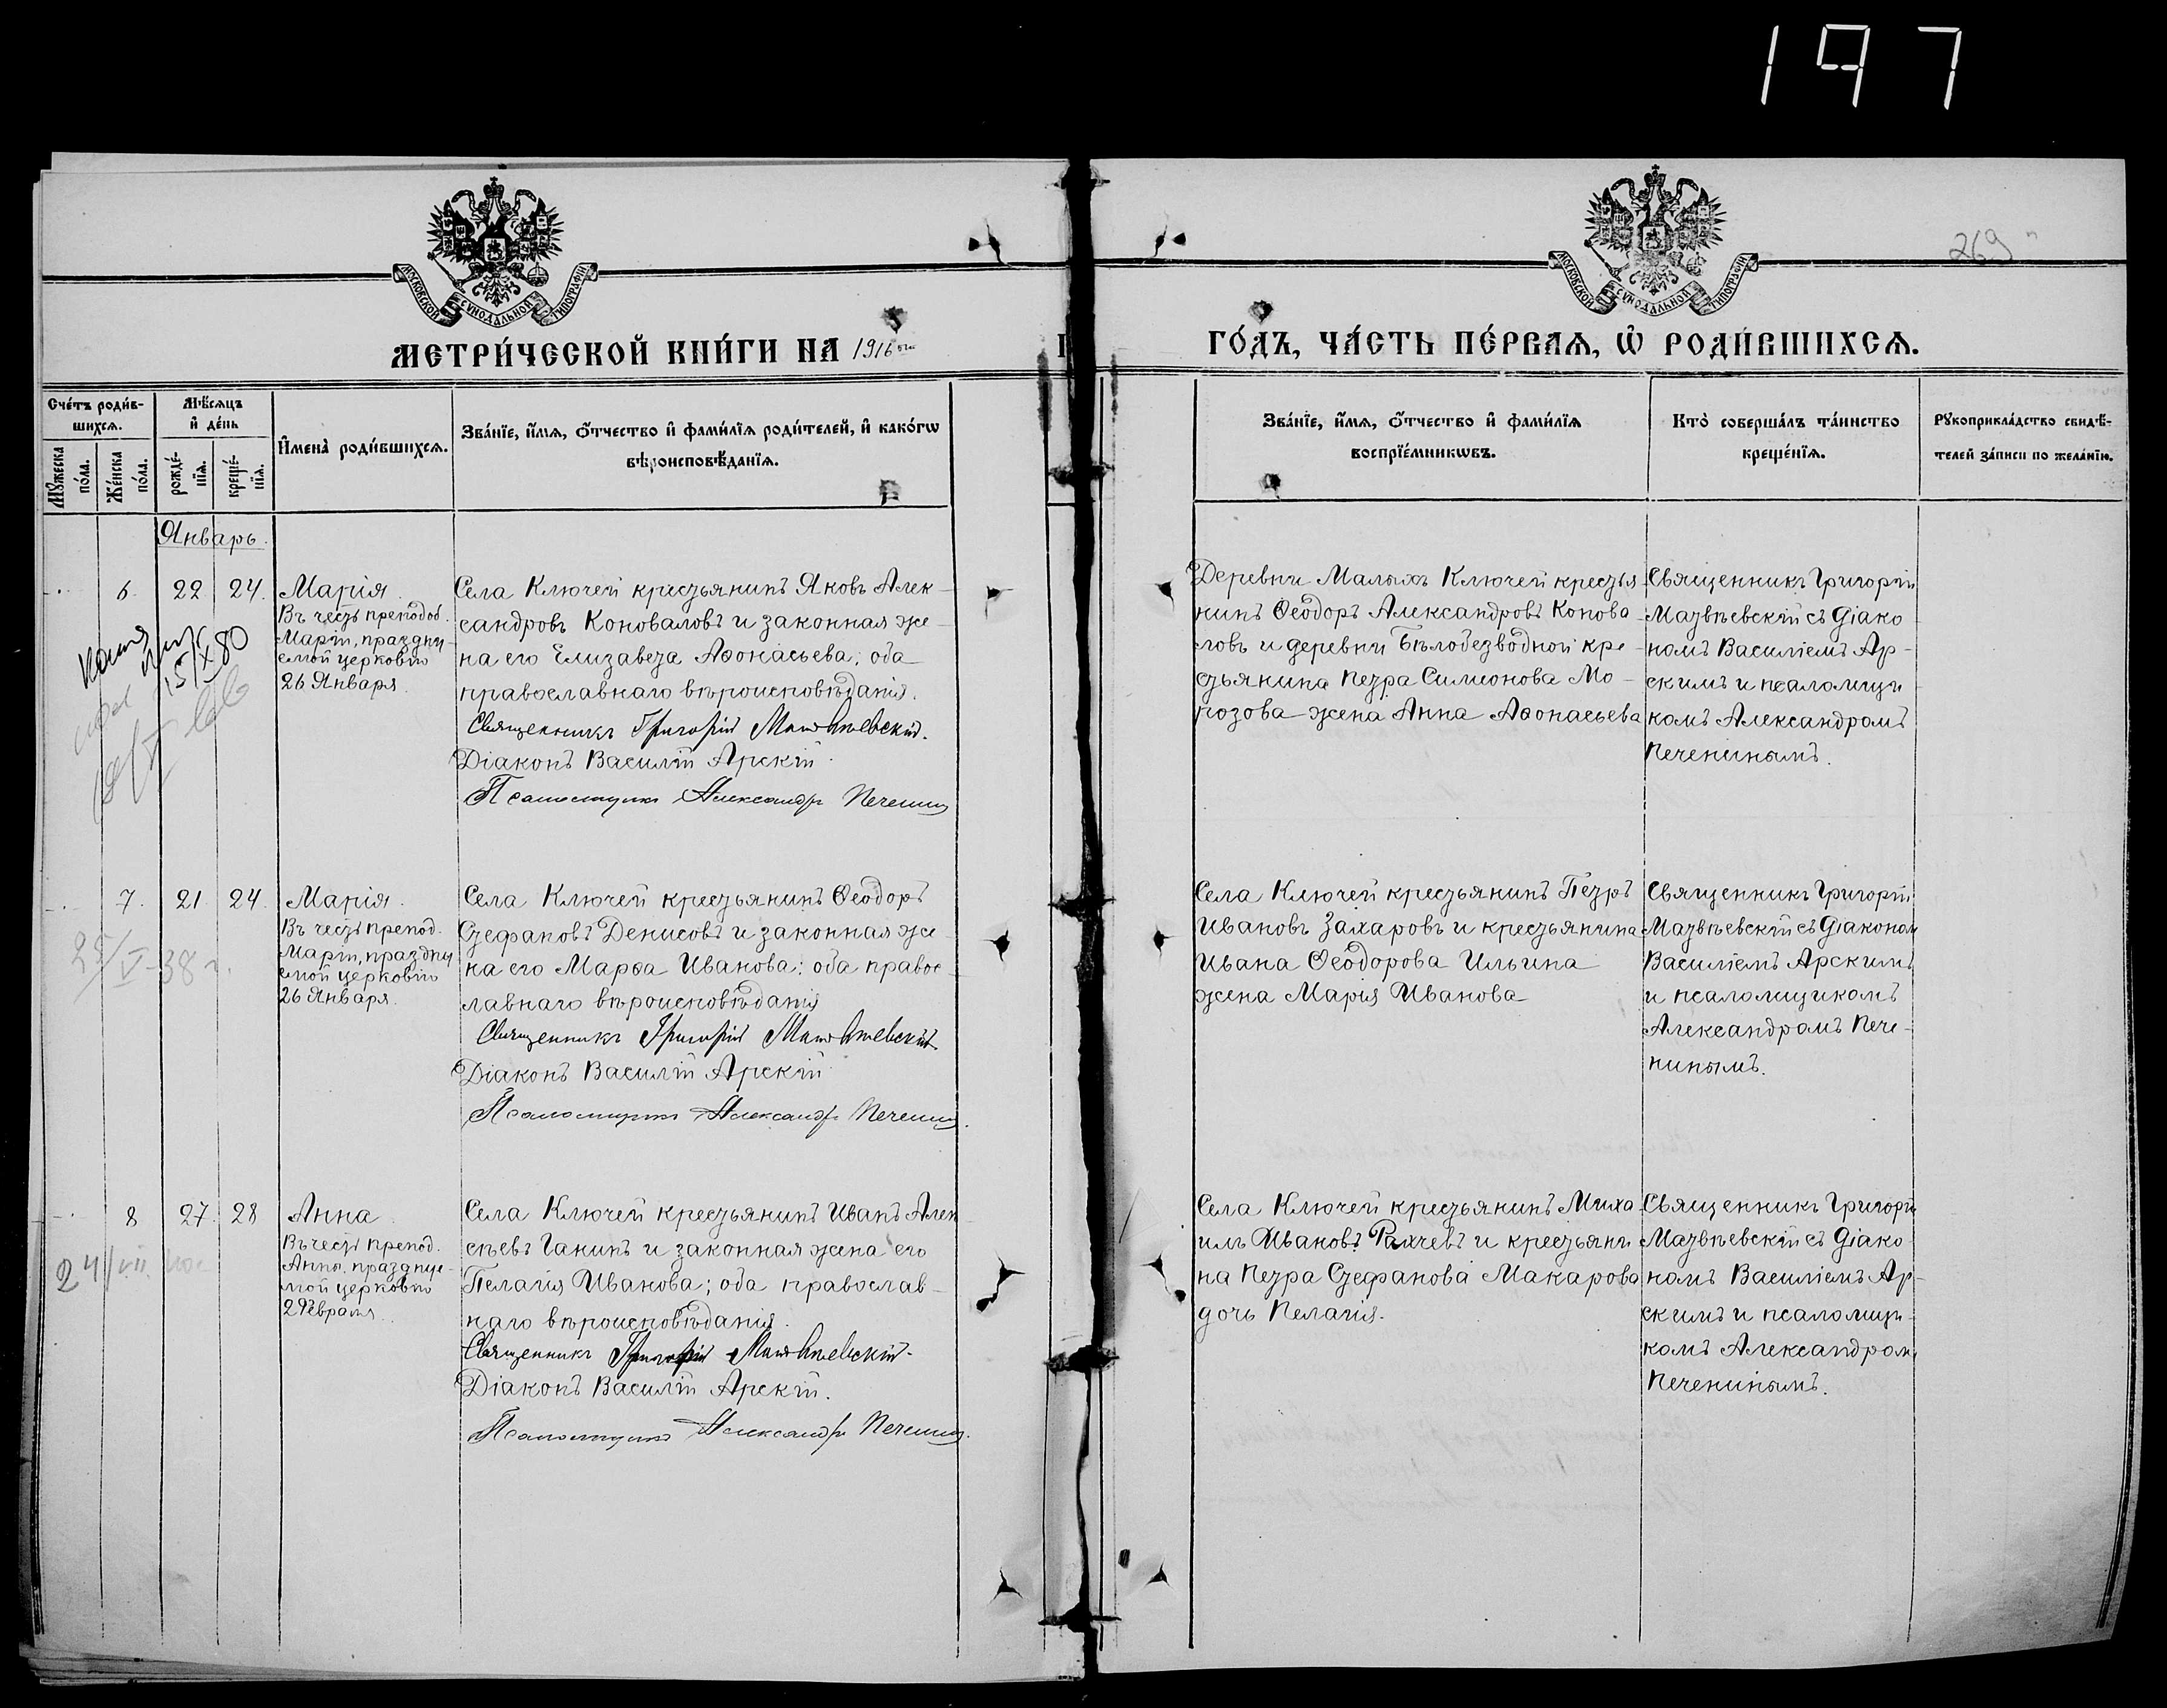 197
МОСКОВСКОЙ СѴНОДАЛЬНОЙ ТИПОГРАФІИ
МОСКОВСКОЙ СѴНОДАЛЬНОЙ ТИПОГРАФІИ
269
МЕТРИ́ЧЕСКОЙ КНИ́ГИ НА 1916 ой
ГО́ДЪ, ЧА́СТЬ ПЕ́РВАѦ, Ѡ҆ РОДИ́ВШИХСѦ.
Сче́тъ роди́в-
шихсѧ.
Мꙋ́жеска по́ла.
Же́нска по́ла.
Мѣ́сѧцъ
и҆ де́нь
рожде́-
нїѧ.
креще́-
нїѧ.
И҆мена̀ роди́вшихсѧ.
Зва́нїе, и҆́мѧ, ѻ҆́тчество и҆ фами́лїѧ роди́телей, и҆ како́гѡ
вѣроисповѣ́данїѧ.
Зва́нїе, и҆́мѧ, ѻ҆́тчество и҆ фами́лїѧ
воспрїе́мникѡвъ.
Кто̀ соверша́лъ та́инство
креще́нїѧ.
Рꙋкоприкла́дство свидѣ́-
телей за́писи по жела́нїю.
Январь.
6. 22 24. Марія.
Въ честь преподоб.
Маріи, праздну-
емой церковію
26 Января.
15/IX 80
Села Ключей крестьянинъ Яковъ Алек-
сандровъ Коноваловъ и законная же-
на его Елизавета Аѳонасьева; оба
православнаго вѣроисповѣданія.
Священникъ Григорій Матвѣевскій.
Діаконъ Василій Арскій.
Псаломщикъ Александръ Печенинъ
Деревни Малыхъ Ключей крестья-
нинъ Ѳеодоръ Александровъ Конова-
ловъ и деревни Бѣлобезводной кре-
стьянина Петра Симеонова Мо-
розова жена Анна Аѳонасьева
Священникъ Григорій
Матвѣевскій съ діако-
номъ Василіемъ Ар-
скимъ и псаломщи-
комъ Александромъ
Печенинымъ.
7. 21 24. Марія.
Въ честь препод.
Маріи, праздну
емой церковію
26 Января.
25/V-38 г.
Села Ключей крестьянинъ Ѳеодоръ
Стефановъ Денисовъ и законная же-
на его Марѳа Иванова; оба правос-
лавнаго вѣроисповѣданія
Священникъ Григорій Матвѣевскій
Діаконъ Василій Арскій
Псаломщикъ Александръ Печенинъ.
Села Ключей крестьянинъ Петръ
Ивановъ Захаровъ и крестьянина
Ивана Ѳеодорова Ильина
жена Марія Иванова
Священникъ Григорій
Матвѣевскій съ діакономъ
Василіемъ Арскимъ
и псаломщикомъ
Александромъ Пече-
нинымъ.
8 27. 28 Анна
Въ честь препод.
Анны. праздпуе-
мой церковію
2 Февраля.
24/VII
Села Ключей крестьянинъ Иванъ Алек-
сѣевъ Ганинъ и законная жена его
Пелагія Иванова; оба православ-
наго вѣроисповѣданія.
Священникъ Григорій Матвѣевскій.
Діаконъ Василій Арскій.
Псаломщикъ Александръ Печенинъ.
Села Ключей крестьянинъ Миха-
илъ Ивановъ Рахчевъ и крестьяни
на Петра Стефанова Макарова
дочь Пелагія.
Священникъ Григорій
Матвѣевскій съ діако-
номъ Василіемъ Ар-
скимъ и псаломщи-
комъ Александромъ
Печенинымъ.